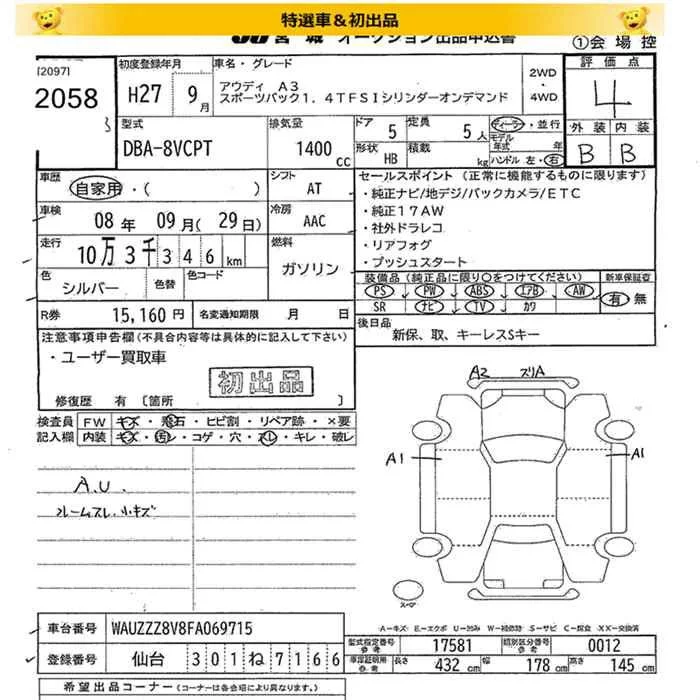 特選車＆初出品
JU宮城 オークション出品申込書
①会場控
[2097]
2058
3
初度登録年月
H27 9月
車名・グレード
アウディ A3
スポーツバック1.4TFSIシリンダーオンデマンド
2WD
・
4WD
評価点
4
外装 内装
B B
型式
DBA-8VCPT
排気量
1400 CC
ドア 5 定員 5人
形状 HB 積載 kg
ディーラー・並行
モデル年式 年
ハンドル 左・右
車歴
自家用・( )
シフト AT
車検
08年 09月(29日)
冷房 AAC
走行
10万3千346km
燃料
ガソリン
色 シルバー 色替 色コード
R券 15,160円 名変通知期限 月 日
セールスポイント (正常に機能するものに限ります)
・純正ナビ/地デジ/バックカメラ/ETC
・純正17AW
・社外ドラレコ
・リアフォグ
・プッシュスタート
装備品(純正品に限り○をつけてください) 新車保証書
PS PW ABS エアB AW 有・無
SR ナビ TV カワ
後日品
新保、取、キーレスSキー
注意事項申告欄(不具合内容等は具体的に記入して下さい)
・ユーザー買取車
初出品
修復歴 有 〔箇所 〕
検査員 FW キズ・飛石・ヒビ割・リペア跡・×要
記入欄 内装 キズ・汚レ・コゲ・穴・スレ・キレ・破レ
A.U.
フレームスレ.小キズ
A2 スリA
A1
A1
スペア
A-キズ E-エクボ U-凹み W-補修跡 S-サビ C-腐食 XX-交換済
車台番号 WAUZZZ8V8FA069715
登録番号 仙台 301ね7166
型式指定番号 参考 17581 類別区分番号 参考 0012
車庫証明用 参考 長さ 432 cm 幅 178 cm 高さ 145 cm
希望出品コーナー(各会場により異なります。)